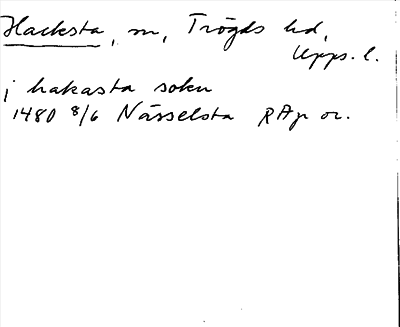 Hacksta, sn, Trögds hd,
Upps. l.
i hakasta sokn
1480 8/6 Nässelsta RAp or.